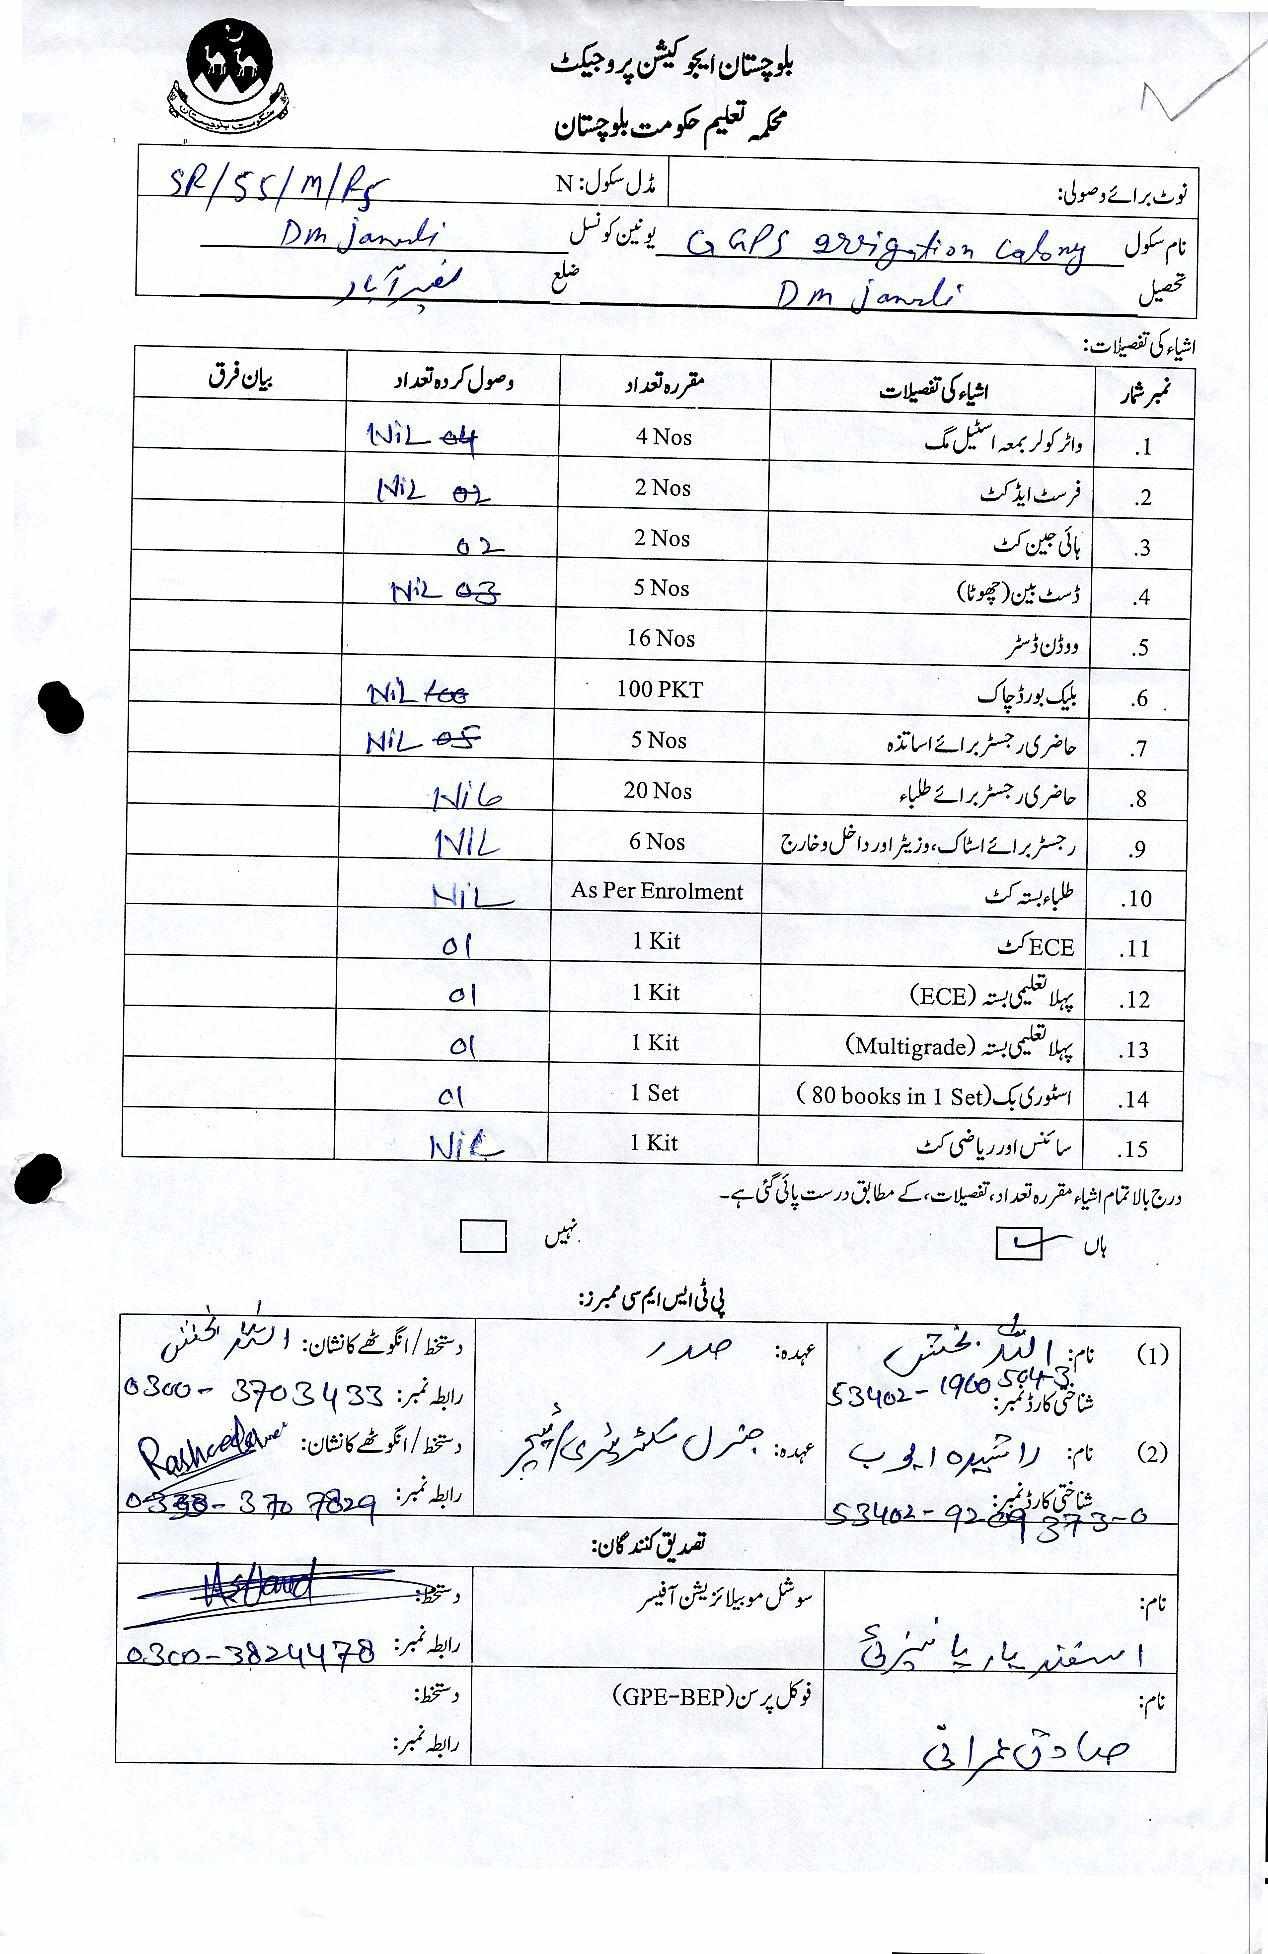 بلوچستان ایجوکیشن پروجیکٹ
محکمہ تعلیم حکومت بلوچستان
حکومت بلوچستان
نوٹ برائے وصولی: مڈل سکول: N SR/SS/M/PS
نام سکول GGPS arrigation Calony یونین کونسل Dm Jamali
تحصیل Dm Jamali ضلع نصیر آباد
اشیاء کی تفصیلات:
نمبر شمار اشیاء کی تفصیلات مقررہ تعداد وصول کردہ تعداد بیان فرق
1. واٹر کولر بمعہ اسٹیل مگ 4 Nos NiL 04
2. فرسٹ ایڈ کٹ 2 Nos NiL 02
3. ہائی جین کٹ 2 Nos 02
4. ڈسٹ بین (چھوٹا) 5 Nos NiL 03
5. ووڈن ڈسٹر 16 Nos
6. بلیک بورڈ چاک 100 PKT NiL 100
7. حاضری رجسٹر برائے اساتذہ 5 Nos NiL 05
8. حاضری رجسٹر برائے طلباء 20 Nos NiL
9. رجسٹر برائے اسٹاک، وزیٹر اور داخل و خارج 6 Nos NIL
10. طلباء بستہ کٹ As Per Enrolment NiL
11. ECE کٹ 1 Kit 01
12. پہلا تعلیمی بستہ (ECE) 1 Kit 01
13. پہلا تعلیمی بستہ (Multigrade) 1 Kit 01
14. اسٹوری بک (80 books in 1 Set) 1 Set 01
15. سائنس اور ریاضی کٹ 1 Kit NiL
درج بالا تمام اشیاء مقررہ تعداد، تفصیلات، کے مطابق درست پائی گئی ہے۔
ہاں نہیں
پی ٹی ایس ایم سی ممبرز:
(1) نام: اللہ بخش عہدہ: صدر دستخط/انگوٹھے کا نشان: اللہ بخش
شناختی کارڈ نمبر: 53402-1960504-3 رابطہ نمبر: 0300-3703433
(2) نام: راشیدہ ایوب عہدہ: جنرل سکٹریٹری/ٹیچر دستخط/انگوٹھے کا نشان:
شناختی کارڈ نمبر: 53402-9209373-0 رابطہ نمبر: 0333-3707829
تصدیق کنندگان:
نام: اسفند یار سوشل موبیلائزیشن آفیسر دستخط:
رابطہ نمبر: 0300-3824478
نام: صادق عمرانی فوکل پرسن (GPE-BEP) دستخط:
رابطہ نمبر: